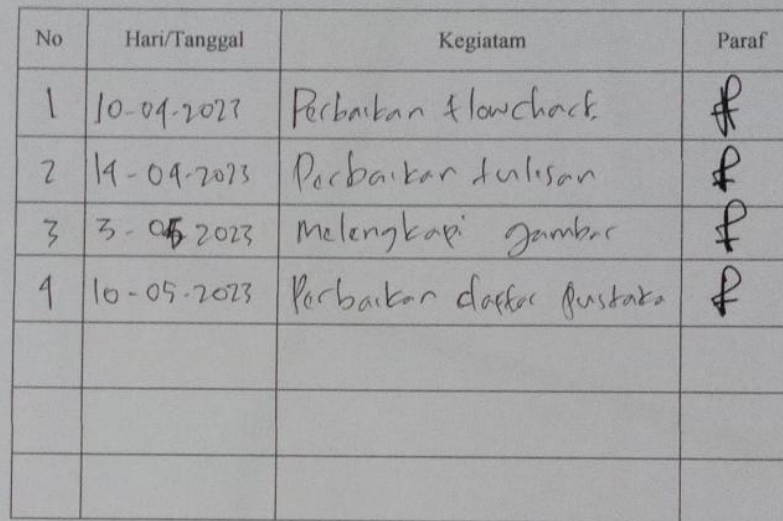 No Hari/Tanggal Kegiatam Paraf
1 10-04-2023 Perbaikan flowchart.
2 14-04-2023 Perbaikan tulisan
3 3-05 2023 Melengkapi gambar
4 10-05-2023 Perbaikan daftar pustaka